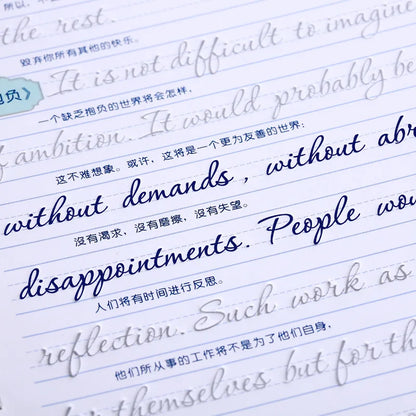 the rest.
毁弃你所有其他的快乐。
抱负》
It is not difficult to imagine
一个缺乏抱负的世界将会怎样,
ambition. It would probably be
这不难想象。或许，这将是一个更为友善的世界：
without demands , without
没有渴求，没有磨擦，没有失望。
disappointments. People
人们将有时间进行反思。
reflection. Such work as
他们所从事的工作将不是为了他们自身，
themselves but for